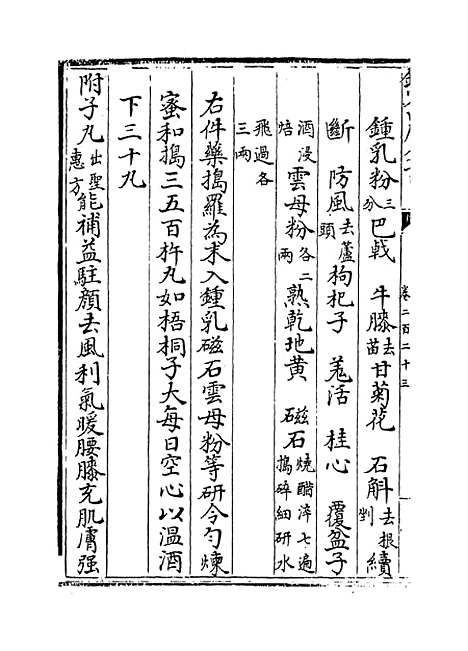 卷二百二十三
鍾乳粉三分巴戟 牛膝去苗甘菊花 石斛去根剉續
斷 防風去蘆頭枸杞子 羗活 桂心 覆盆子
酒浸焙雲母粉各二兩熟乾地黄 磁石燒醋淬七遍搗碎細研水
飛過各三兩
右件藥搗羅為末入鍾乳磁石雲母粉等研令勻煉
蜜和搗三五百杵丸如梧桐子大每日空心以温酒
下三十丸
附子丸出聖惠方能補益駐顔去風利氣暖腰膝充肌膚强